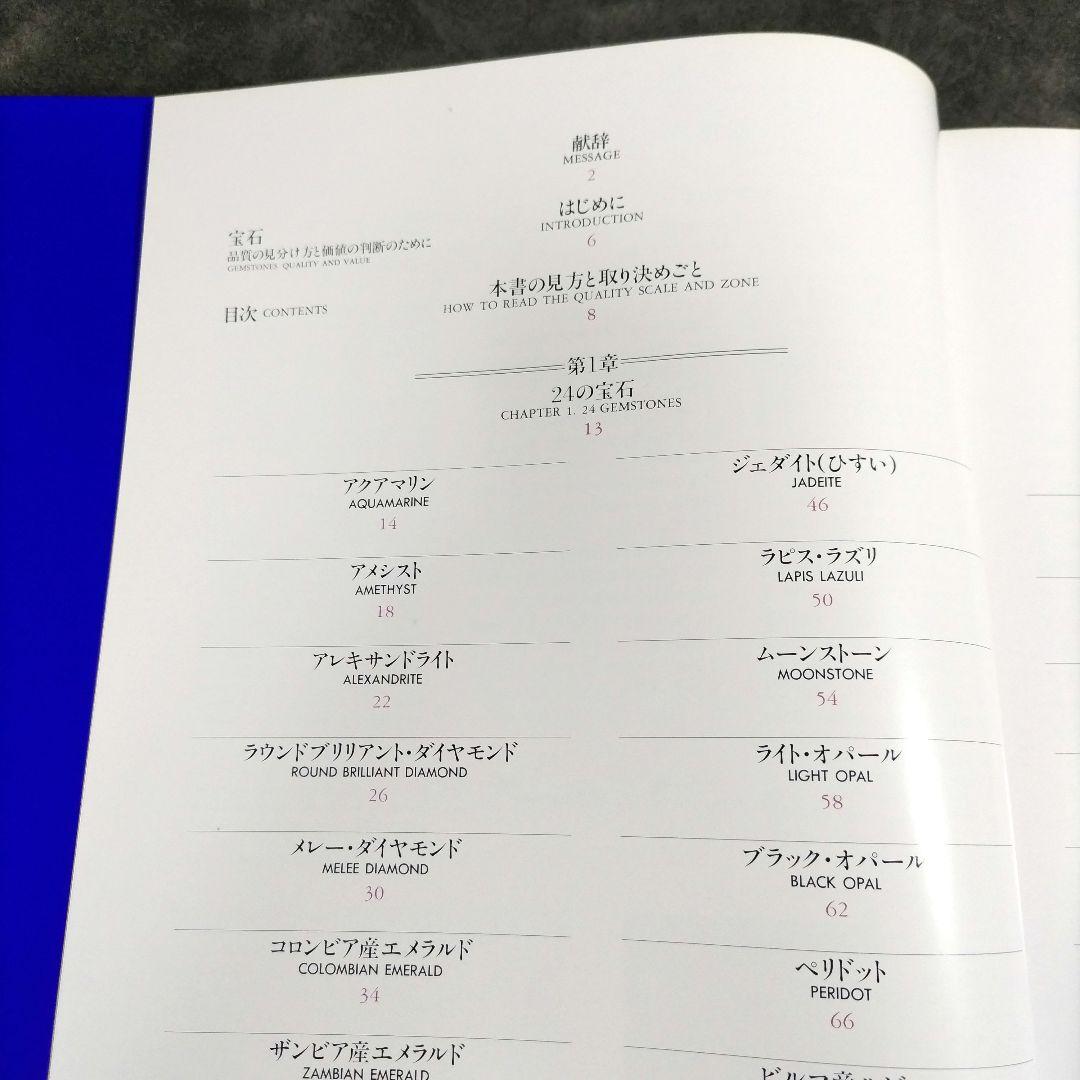 宝石
品質の見分け方と価値の判断のために
GEMSTONES QUALITY AND VALUE
目次 CONTENTS
献辞
MESSAGE
2
はじめに
INTRODUCTION
6
本書の見方と取り決めごと
HOW TO READ THE QUALITY SCALE AND ZONE
8
第1章
24の宝石
CHAPTER 1. 24 GEMSTONES
13
アクアマリン
AQUAMARINE
14
アメシスト
AMETHYST
18
アレキサンドライト
ALEXANDRITE
22
ラウンドブリリアント・ダイヤモンド
ROUND BRILLIANT DIAMOND
26
メレー・ダイヤモンド
MELEE DIAMOND
30
コロンビア産エメラルド
COLOMBIAN EMERALD
34
ザンビア産エメラルド
ZAMBIAN EMERALD
ジェダイト(ひすい)
JADEITE
46
ラピス・ラズリ
LAPIS LAZULI
50
ムーンストーン
MOONSTONE
54
ライト・オパール
LIGHT OPAL
58
ブラック・オパール
BLACK OPAL
62
ペリドット
PERIDOT
66